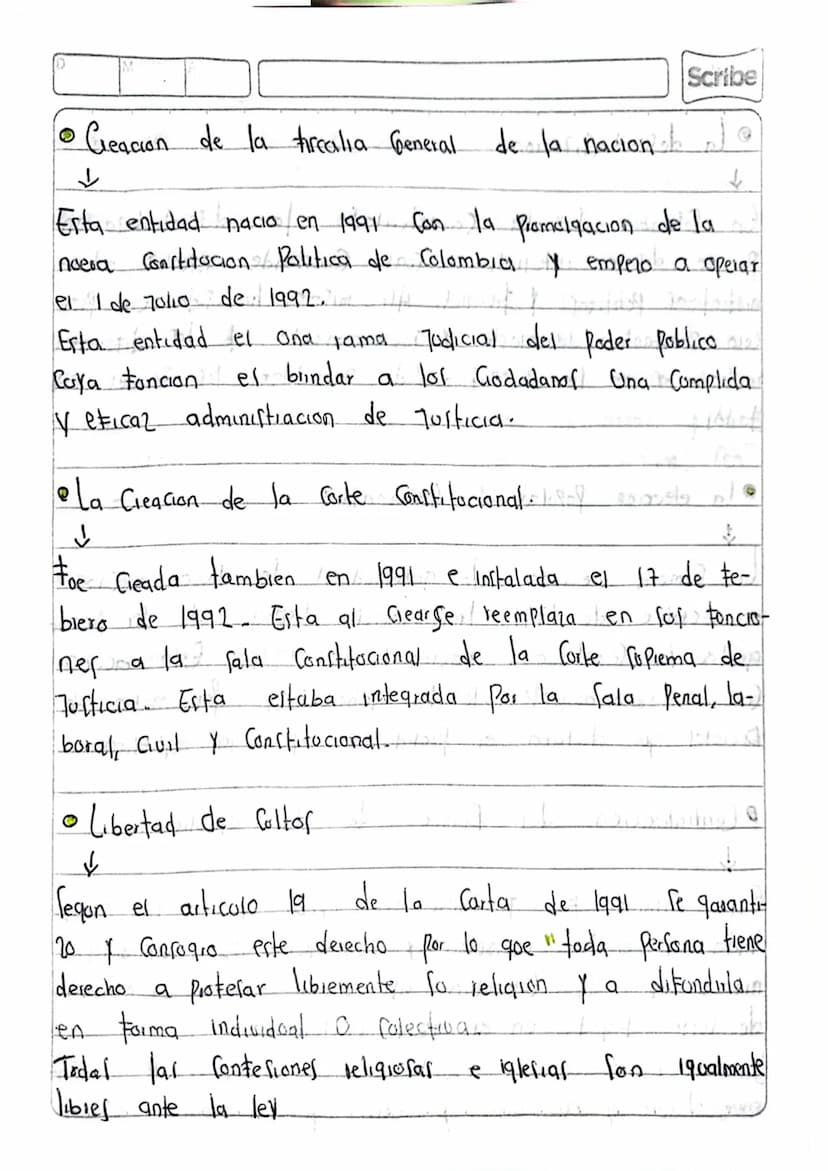 D M F Scribe
Creacion de la fiscalia General de la nacion
Esta entidad nacio en 1991 con la Promulgacion de la
nueva Constitucion Politica de Colombia y empezo a operar
el 1 de Julio de 1992.
Esta entidad es una rama Judicial del Poder Publico
Cuya funcion es brindar a los Ciudadanos una Cumplida
y eficaz administracion de Justicia.
La Creacion de la Corte Constitucional.
fue Creada tambien en 1991 e instalada el 17 de fe-
brero de 1992. Esta al Crearse reemplaza en sus funcio-
nes a la Sala Constitucional de la Corte Suprema de
Justicia. Esta estaba integrada Por la Sala Penal, la-
boral, Civil y Constitucional.
Libertad de Cultos
Segun el articulo 19 de la Carta de 1991 Se garanti-
zo y Consagro este derecho por lo que "toda Persona tiene
derecho a Profesar libremente su religion y a difundirla
en forma individual o Colectiva.
Todas las Confesiones religiosas e iglesias Son igualmente
libres ante la ley